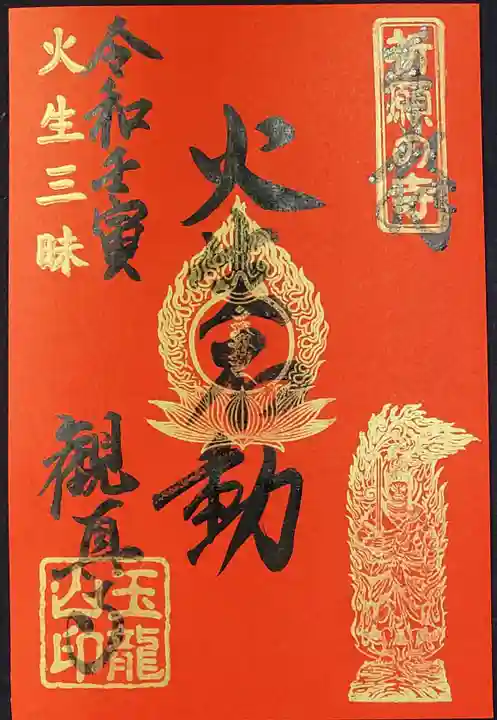 祈願の寺
火
動
令和壬寅
火生三昧
観真寺
玉龍山印